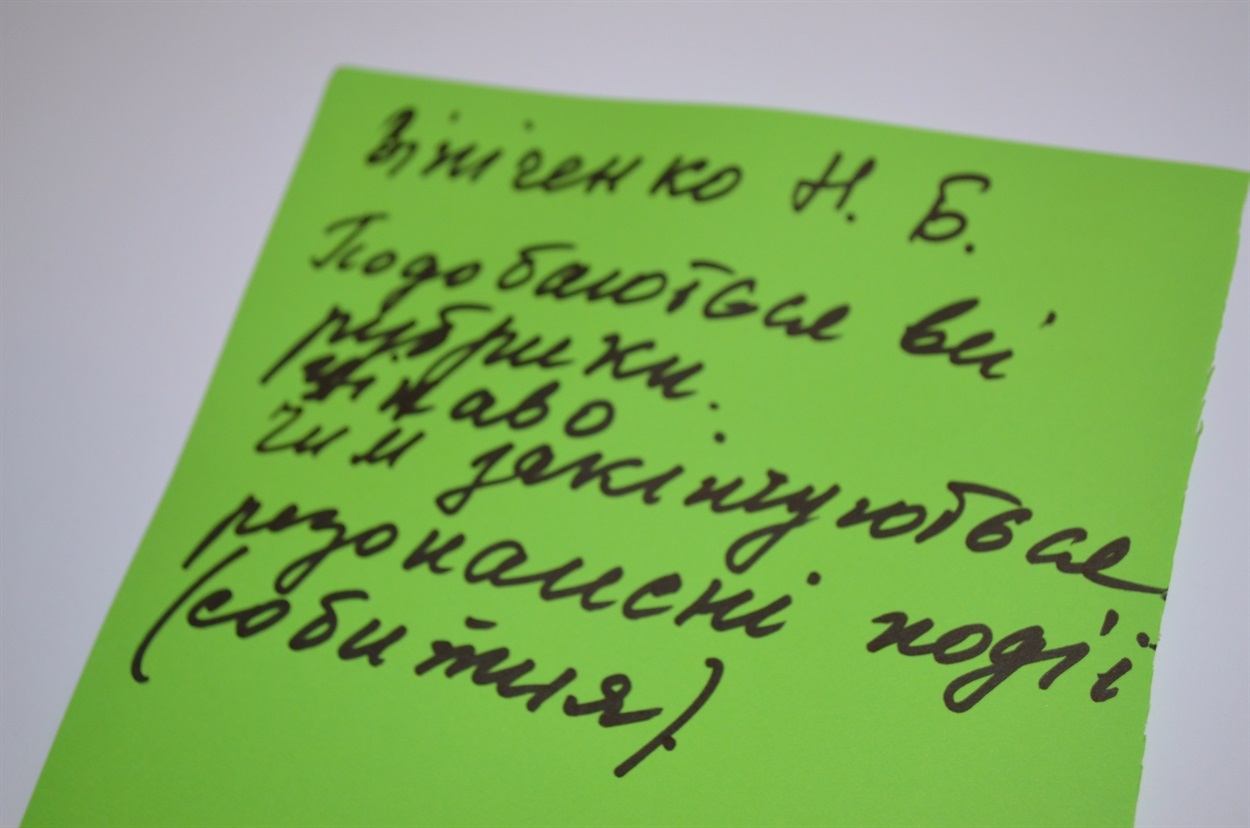 Вініченко Н. Б.
Подобаються всі
рубрики.
Цікаво
чим закінчуються
резонансні події
(события).